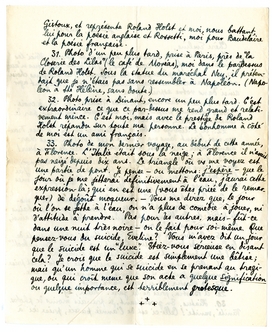 Gistoux, et représente Roland Holst et moi, nous battant.
lui pour la poésie anglaise et Rossetti, moi pour Baudelaire
et la poésie française.
31. Photo d'un peu plus tard, prise à Paris, près de la
Closerie des Lilas (le café de Moréas), moi dans le pardessus
de Roland Holst, sous la statue du maréchal Ney, il préten-
dait que je n'étais pas sans ressembler à Napoléon. (Napo-
léon à Ste Hélène, sans doute.)
32. Photo prise à Dinant, encore un peu plus tard. C'est
extraordinaire ce que ce par-dessus me rend grand et relati-
vement mince. C'est moi, mais avec le prestige de Roland
Holst répandu sur toute ma personne. Le bonhomme à côté
de moi est un ami français.
33. Photo de mon dernier voyage, au début de cette année
à Florence. L'Italie était sous la neige; à Florence il n'avait
pas neigé depuis dix ans. Le triangle où vs me voyez est
une partie de pont. Je pense — ou mettons: j'espère — que le
jour où je me jetterai définitivement à l'eau, j'aurai cette
expression-là; qui en est une (vous êtes priée de le remar-
quer) de dégoût moqueur. — Vous me direz que, le jour
où l'on se jette à l'eau, on n'a plus de comédie à jouer, ni
d'attitude à prendre. Pas pour les autres, mais — fût-ce
dans une nuit très noire — on le fait pour soi-même. Que
pensez-vous du suicide, Eveline? Vous m'avez dit un jour
que le suicide est un luxe. Etiez-vous sérieuse en disant
cela? Je crois que le suicide est simplement une bêtise;
mais qu'un homme qui se suicide en se prenant au tragi-
que, ou qui croit même que son acte a quelque signification
ou quelque importance, est terriblement grotesque.
+ * +